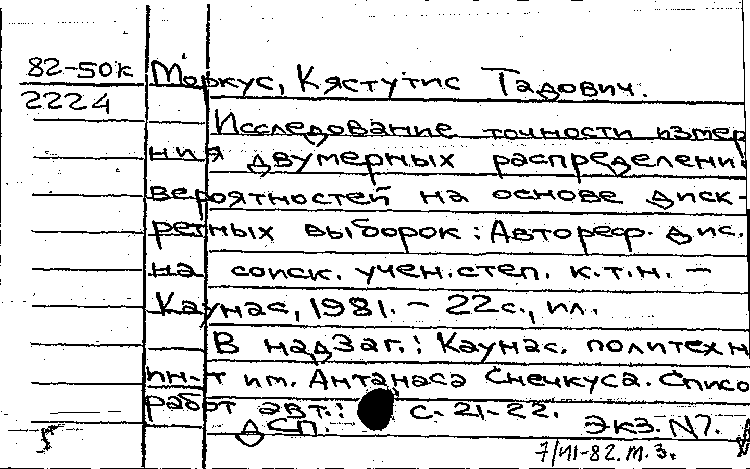 82-50к Моркус, Кястутис Тадович.
2224
Исследование точности измер
ния двумерных распределени
вероятностей на основе диск-
ретных выборок: Автореф. дис.
на соиск. учен. степ. к.т.н. –
Каунас, 1981. – 22с., ил.
В надзаг.: Каунас. политехн
ин-т им. Антанаса Снечкуса. Списо
работ авт.: с. 21-22.
ДСП. Экз. N7.
7/VII-82.м.з.